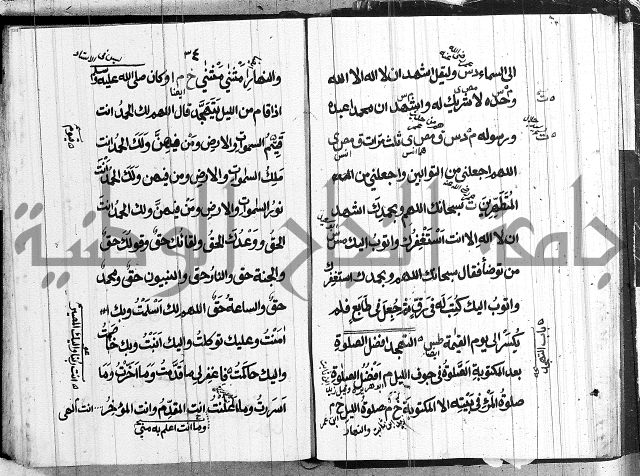 الى السماء دس وليقل اشهد ان لا اله الا الله
وحده لا شريك له واشهد ان محمدا عبده
ورسوله م دس ق مص ى ثلث مرات ق مص ى
اللهم اجعلنى من التوابين واجعلنى من
المتطهرين ت سبحانك اللهم وبحمدك اشهد
ان لا اله الا انت استغفرك واتوب اليك مس
من توضأ فقال سبحانك اللهم وبحمدك استغفرك
واتوب اليك كتب له فى رق ثم جعل فى طابع فلم
يكسر الى يوم القيمة طس التهجد افضل الصلوة
بعد المكتوبة الصلوة فى جوف الليل م افضل الصلوة
صلوة المرء فى بيته الا المكتوبة خ م صلوة الليل
والنهار
باب التهجد
٣٤
والنهار مثنى مثنى خ م ا وكان صلى الله عليه وسلم
اذا قام من الليل يتهجد قال اللهم لك الحمد انت
قيم السموات والارض ومن فيهن ولك الحمد انت
ملك السموات والارض ومن فيهن ولك الحمد انت
نور السموات والارض ومن فيهن ولك الحمد انت
الحق ووعدك الحق ولقائك حق وقولك حق
والجنة حق والنار حق والنبيون حق ومحمد
حق والساعة حق اللهم لك اسلمت وبك
امنت وعليك توكلت واليك انبت وبك خاصمت
واليك حاكمت فاغفر لى ما قدمت وما اخرت وما
اسررت وما اعلنت انت المقدم وانت المؤخر انت الهى
وما انت اعلم به منى
انت ربنا واليك المصير
جامعة النجاح الوطنية